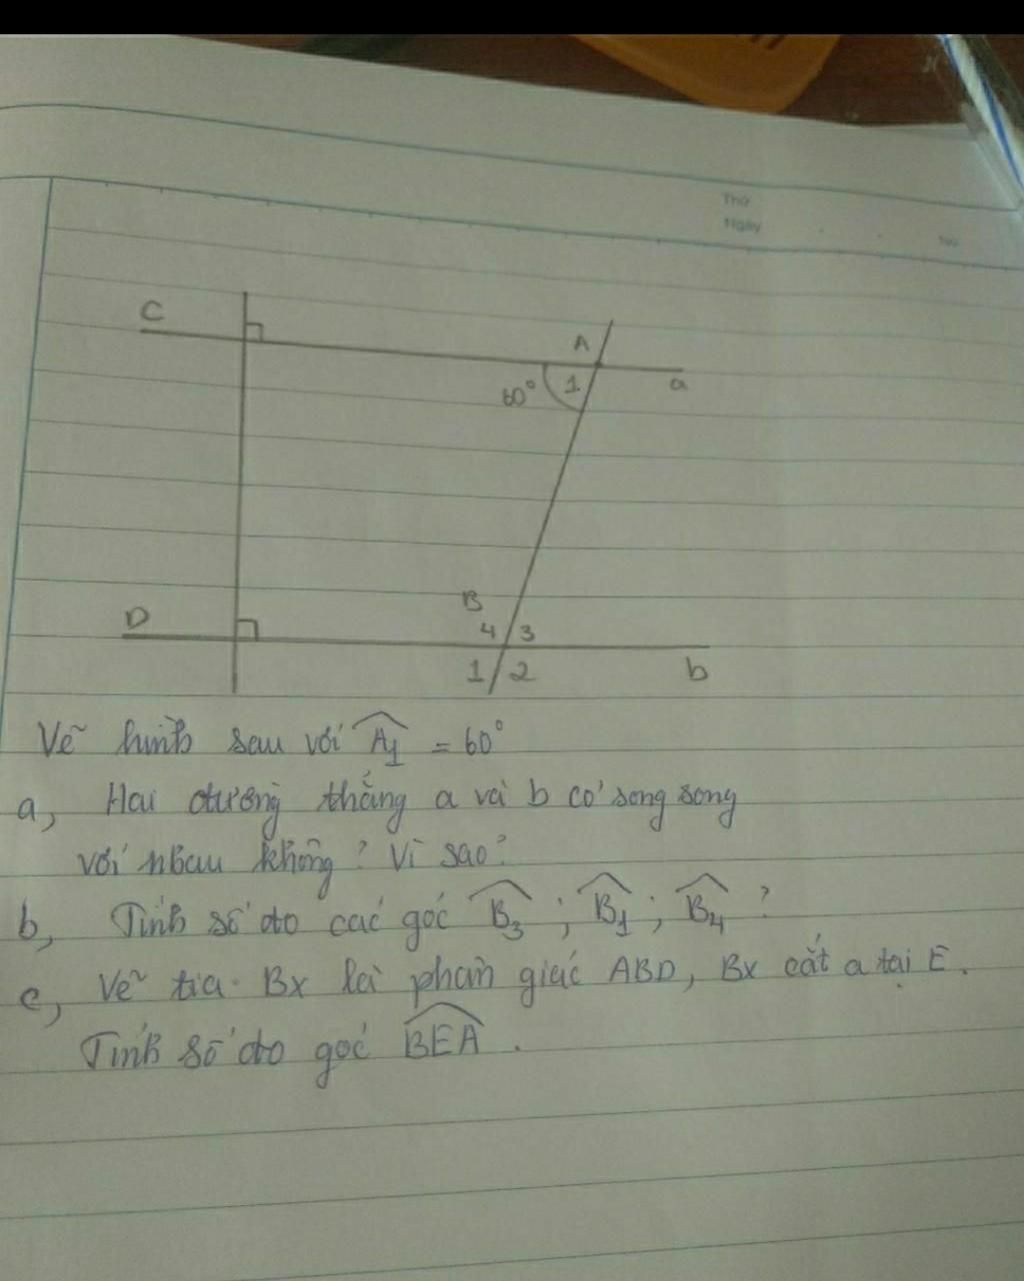 Thứ
Ngày
No
C
A
60° 1 a
D
B
4 3
1 2 b
Vẽ hình sau với A₁ = 60°
a, Hai đường thẳng a và b có song song
với nhau không? Vì sao?
b, Tính số đo các góc B₃ ; B₁ ; B₄ ?
c, Vẽ tia Bx là phân giác ABD, Bx cắt a tại E.
Tính số đo góc BEA.